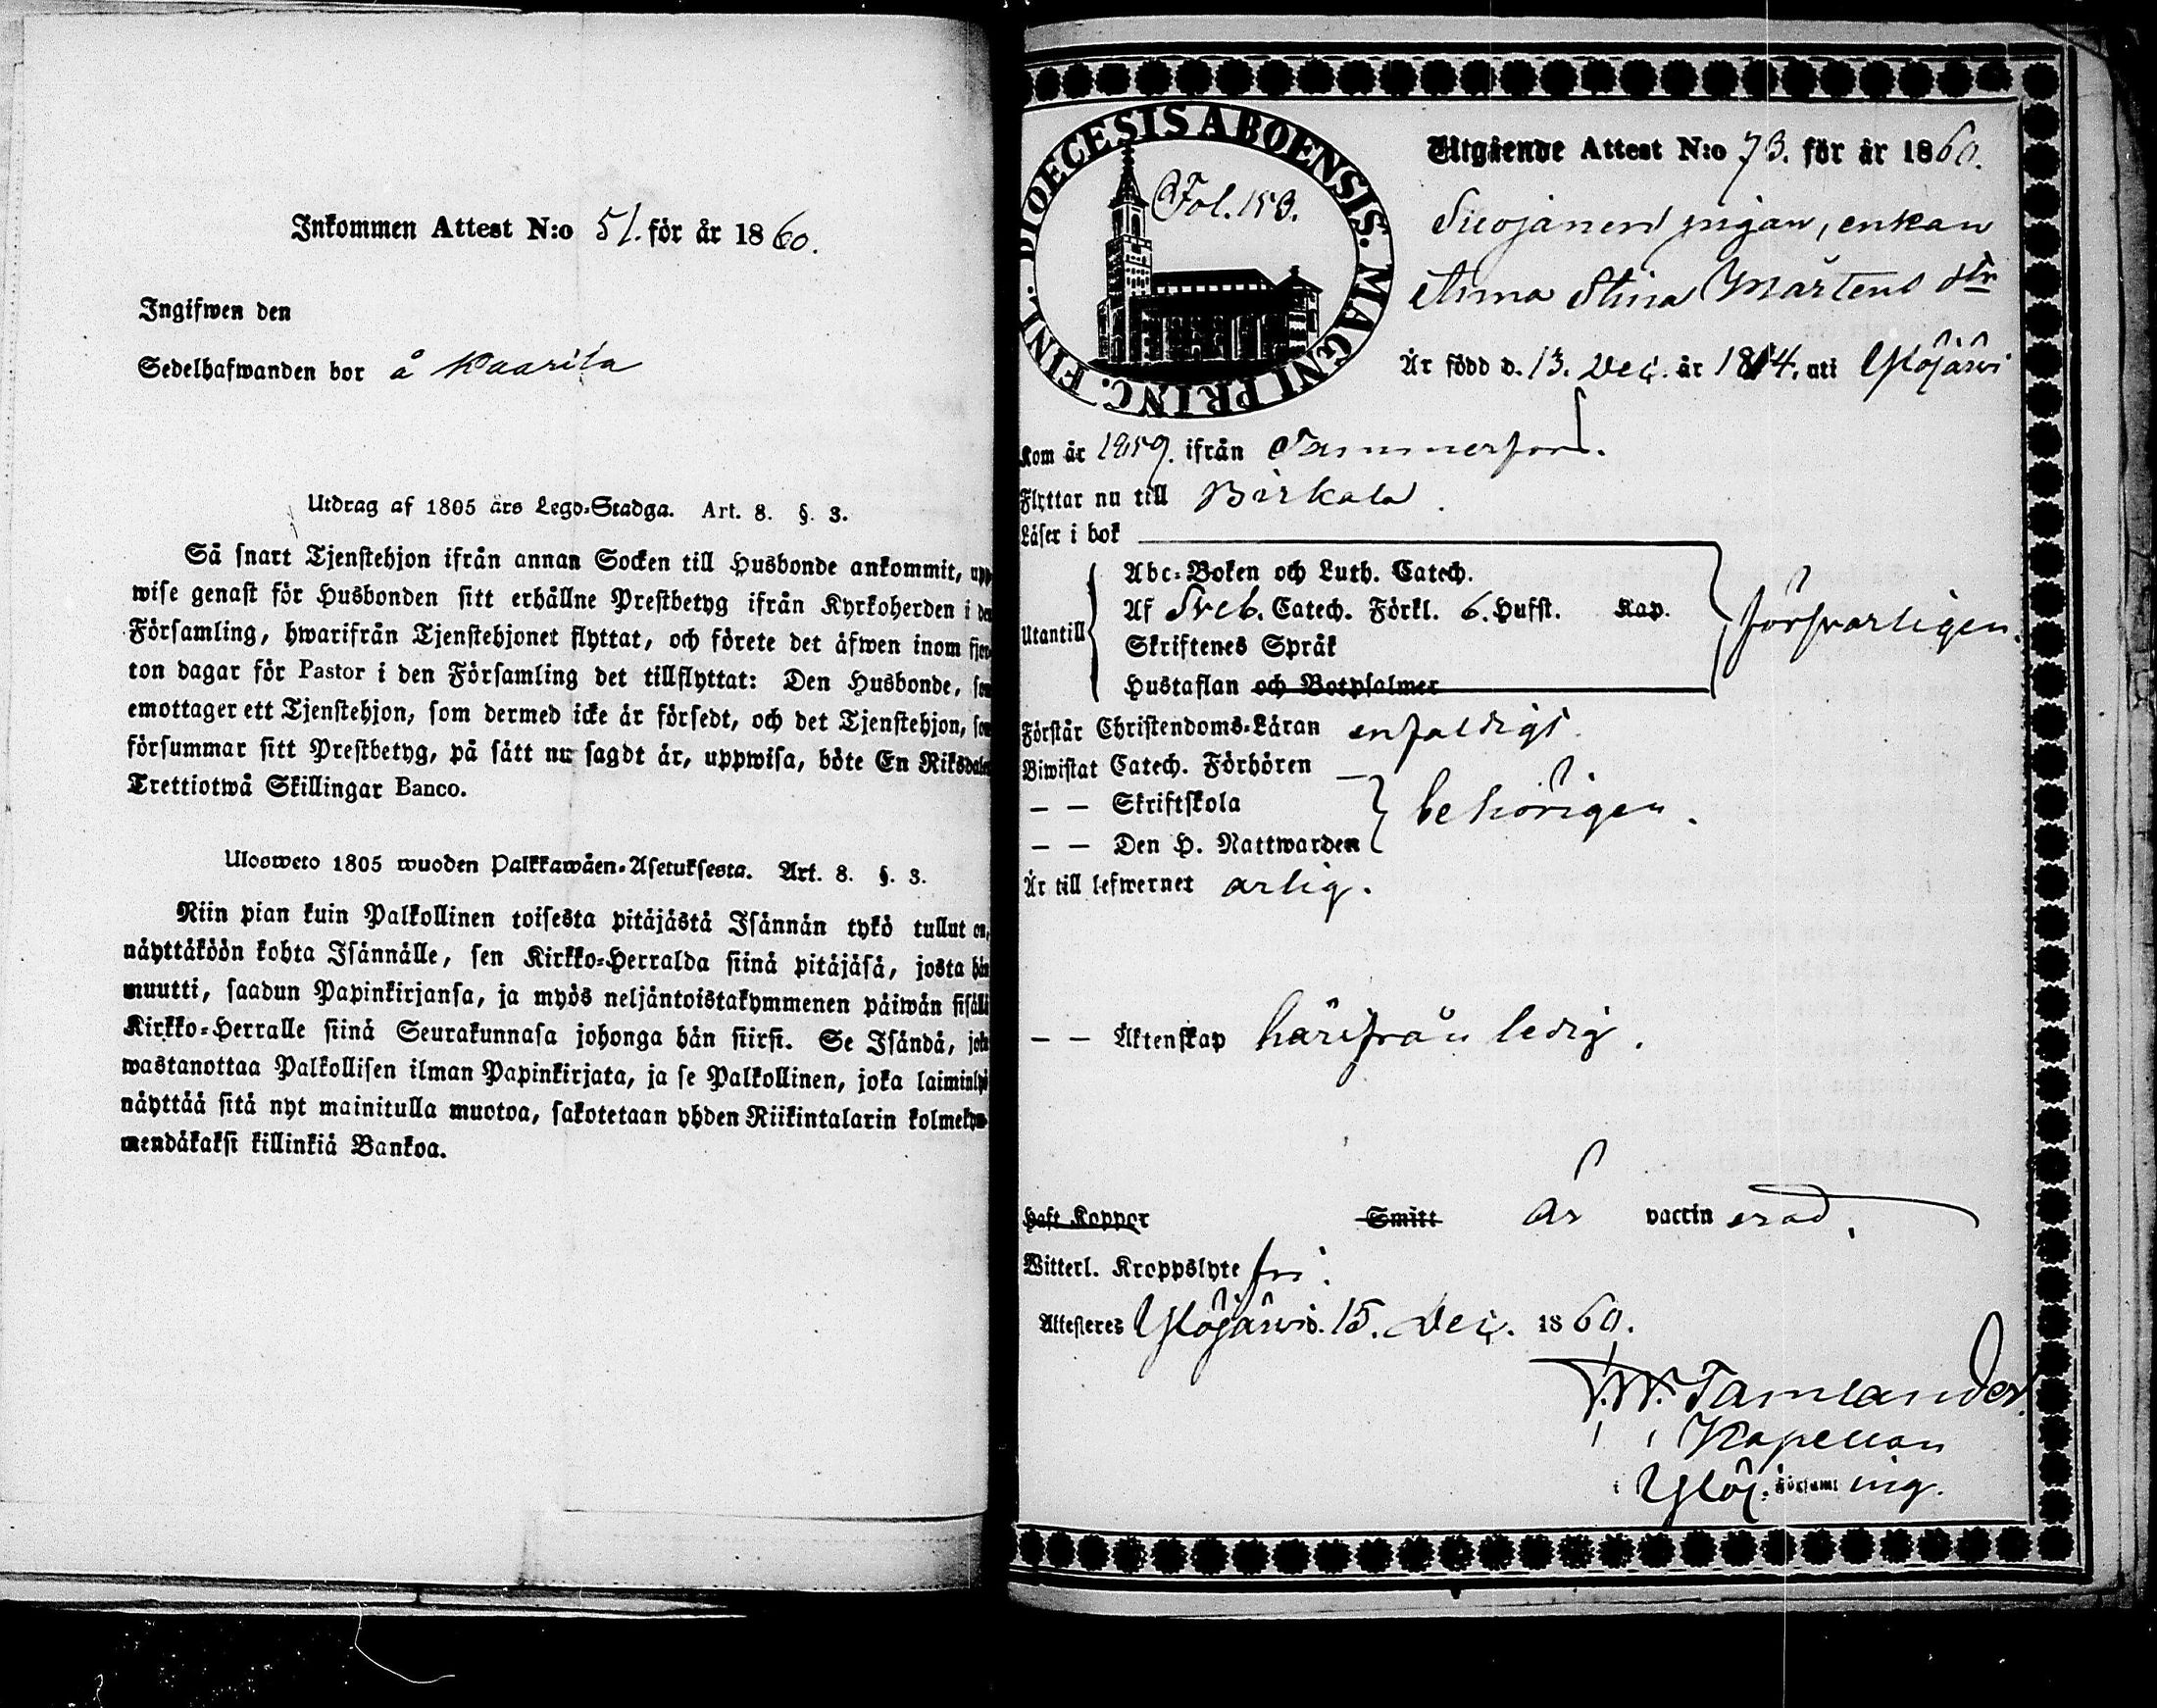 Inkommen Attest N:o 51. för år 1860.
Ingifwen den
Sedelhafwanden bor å Kaarila
Utdrag af 1805 års Lego-Stadga. Art. 8. §. 3.
Så snart Tjenstehjon ifrån annan Socken till Husbonde ankommit, upp-
wise genast för Husbonden sitt erhållne Prestbetyg ifrån Kyrkoherden i den
Församling, hwarifrån Tjenstehjonet flyttat, och förete det äfwen inom fjor-
ton dagar för Pastor i den Församling det tillflyttat: Den Husbonde, som
emottager ett Tjenstehjon, som dermed icke är försedt, och det Tjenstehjon, som
försummar sitt Prestbetyg, på sätt nu sagdt är, uppwisa, böte En Riksdaler
Trettiotwå Skillingar Banco.
Ulosweto 1805 wuoden Palkkawäen-Asetuksesta. Art. 8. §. 3.
Niin pian kuin Palkollinen toisesta pitäjästä Isännän tykö tullut on,
näyttäköön kohta Isännälle, sen Kirkko-Herralda siinä pitäjäsä, josta hän
muutti, saadun Papinkirjansa, ja myös neljäntoistakymmenen päiwän sisällä
Kirkko-Herralle siinä Seurakunnasa johonga hän siirsi. Se Isändä, joka
wastanottaa Palkollisen ilman Papinkirjata, ja se Palkollinen, joka laiminlyö
näyttää sitä nyt mainitulla muotoa, sakotetaan yhden Riikintalarin kolmekym-
mendäkaksi killinkiä Bankoa.
DIOECESIS ABOENSIS. MAGNI PRINC. FINL.
Fol. 153.
Utgående Attest N:o 73. för år 1860.
pigan, enkan
Anna Stina Mårtens dtr
Är född d. 13. Dec. år 1814. uti Ylöjärvi
Kom år 1859. ifrån Tammerfors.
Flyttar nu till Birkala.
Läser i bok
Utantill
Abc-Boken och Luth. Catech.
Af Sveb. Catech. Förkl. 6. Hufst. Kap.
Skriftenes Språk
Hustaflan och Botpsalmer
försvarligen.
Förstår Christendoms-Läran enfaldigt.
Biwistat Catech. Förhören —
— — Skriftskola
— — Den H. Nattwarden
behörigen.
Är till lefwernet ärlig.
— — Äktenskap härifrån ledig.
Haft Koppor Smitt Är vaccinerad.
Witterl. Kroppslyte fri.
Attesteres Ylöjärvi d. 15. Dec. 1860.
Tamlander.
Kapellan
i Ylöj. Församling.